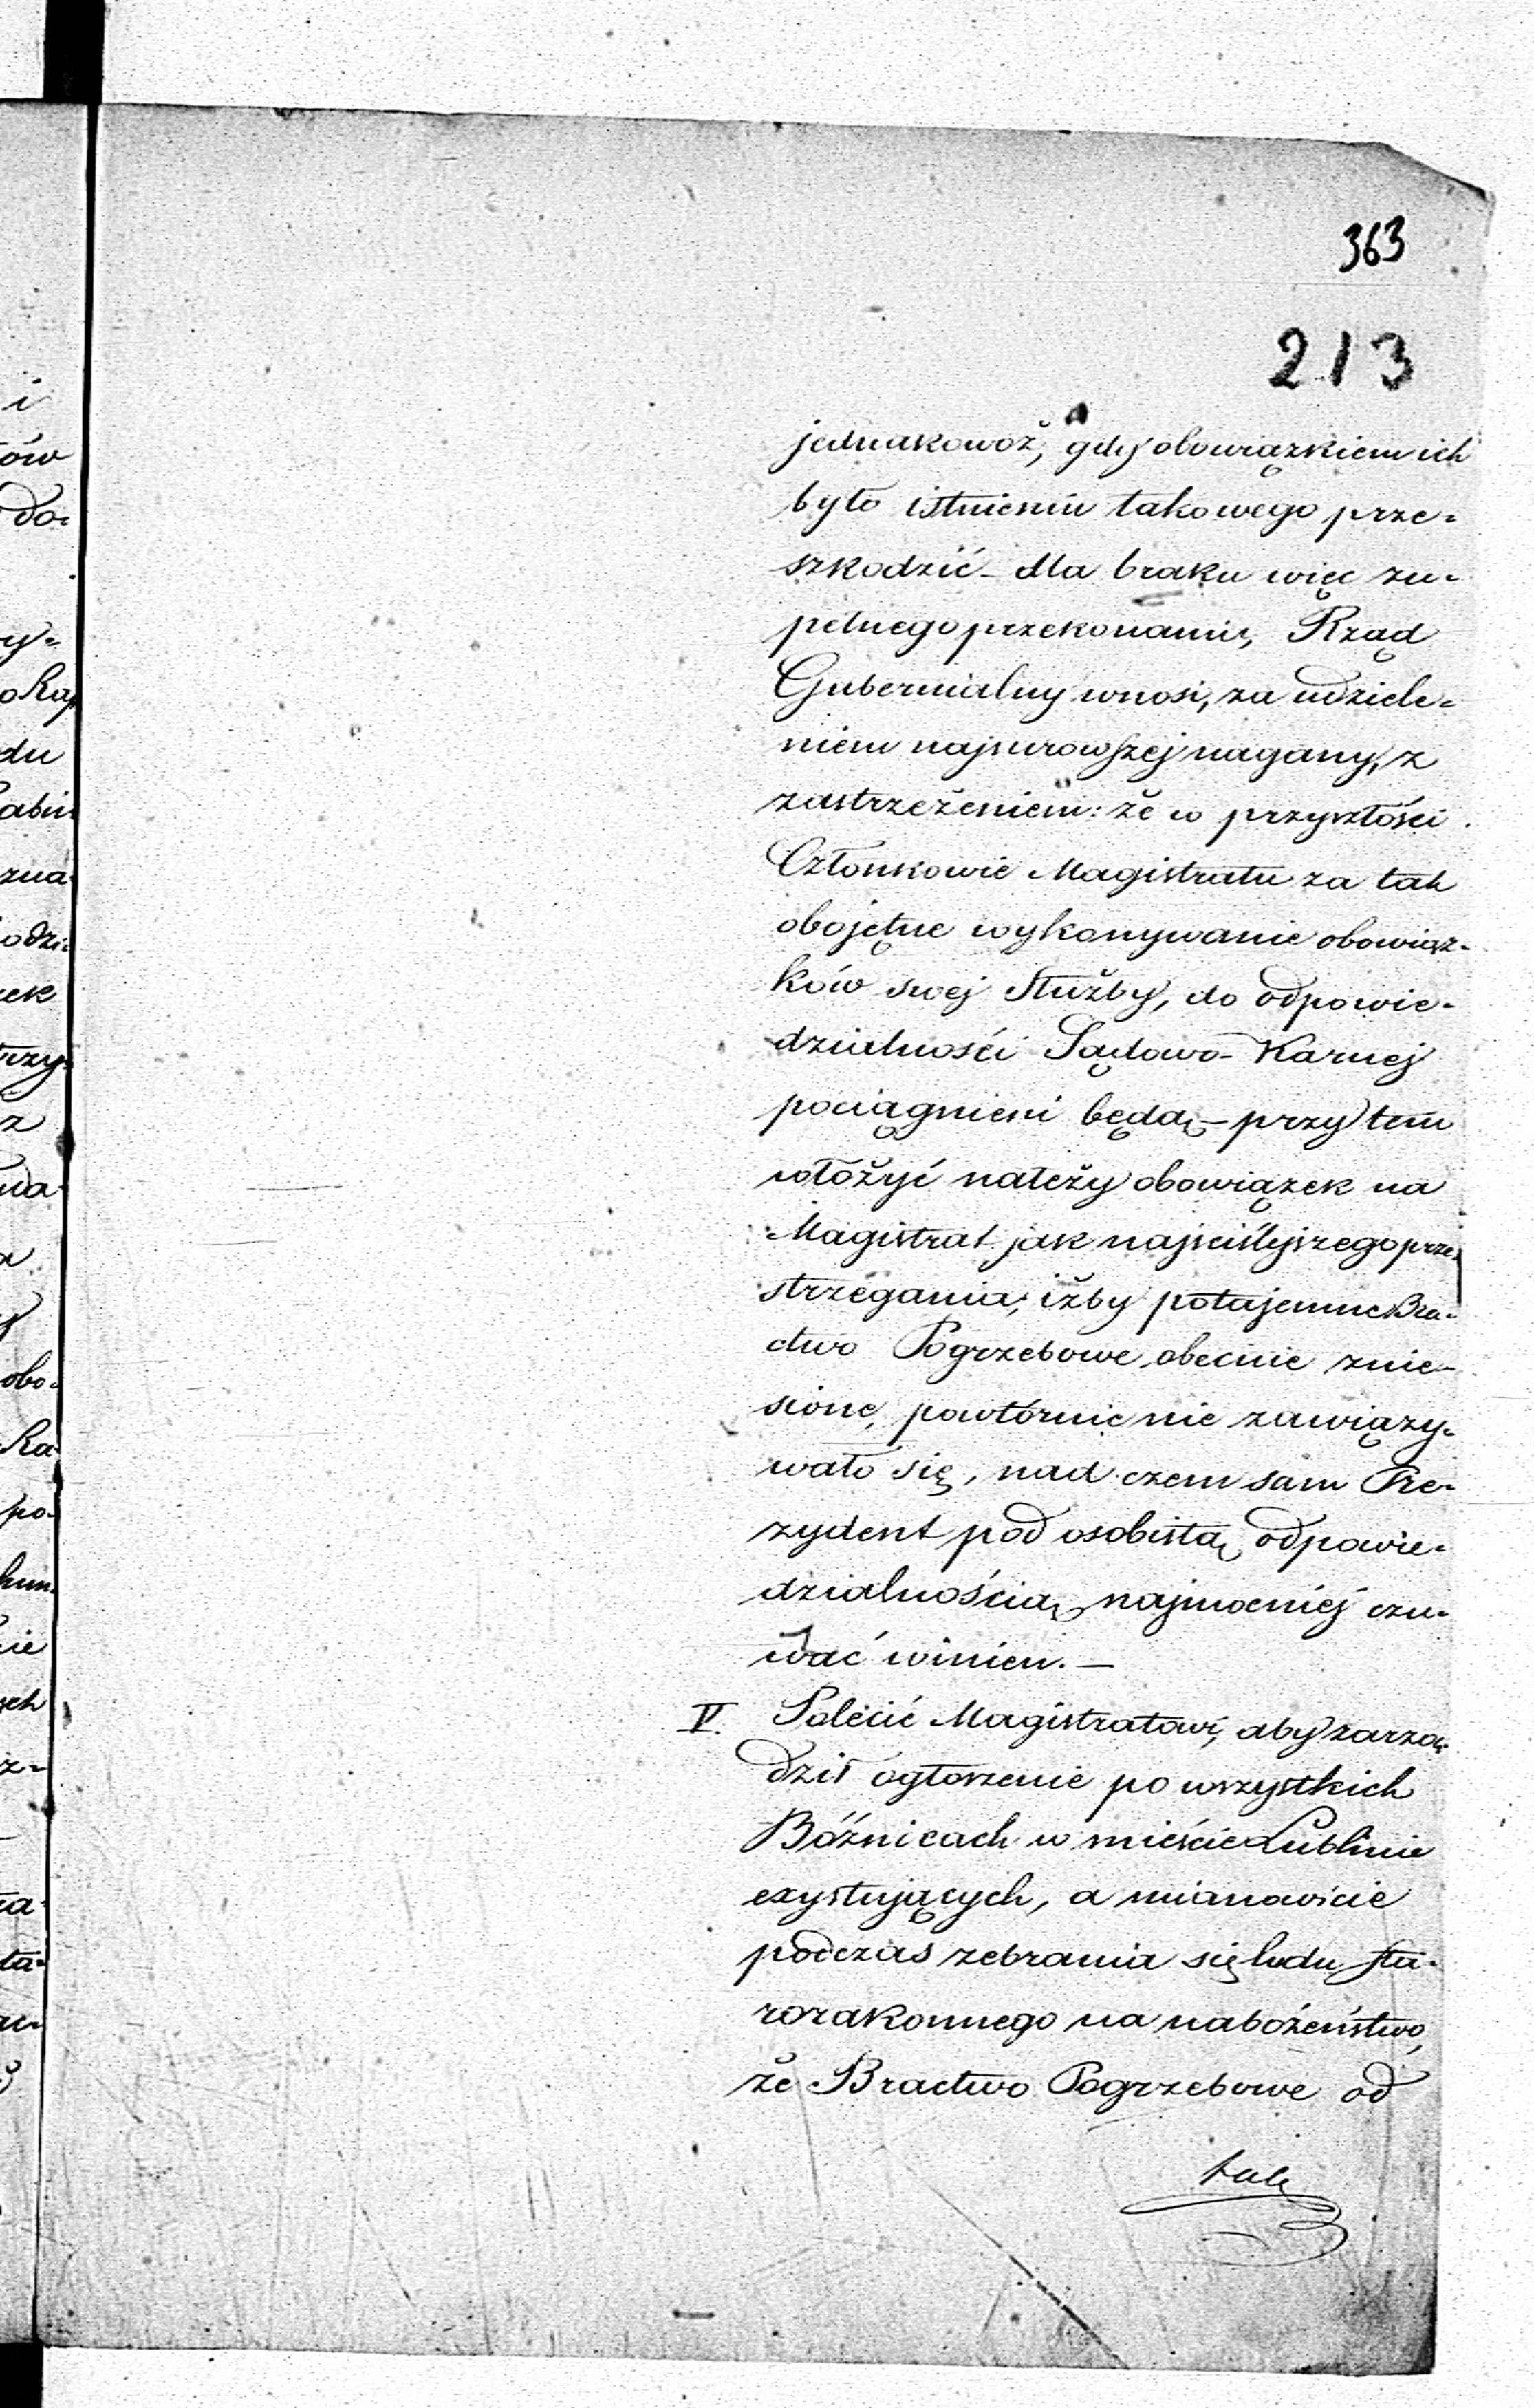 363
213
jednakowoż, gdy obowiązkiem ich
było istnieniu takowego prze-
szkodzić – dla braku więc zu-
pełnego przekonania, Rząd
Gubernialny wnosi, za udziele-
niem najsurowszej nagany, z
zastrzeżeniem: że w przyszłości
Członkowie Magistratu za tak
obojętne wykonywanie obowiąz-
ków swej Służby, do odpowie-
dzialności Sądowo-Karnej
pociągnieni będą – przytem
włożyć należy obowiązek na
Magistrat jak najściślejszego prze-
strzegania, iżby potajemne Bra-
ctwo Pogrzebowe obecnie znie-
sione, powtórnie nie zawiązy-
wało się, nad czem sam Pre-
zydent pod osobistą odpowie-
dzialnością najmocniéj czu-
wać winien. —
V. Polécić Magistratowi, aby zarzą-
dził ogłoszenie po wszystkich
Bóźnicach w mieście Lublinie
exystujących, a mianowicie
podczas zebrania się ludu sta-
rozakonnego na nabożeństwo,
że Bractwo Pogrzebowe od
i
ów
do-
y-
du
zua
odzi-
ek
rzy-
z
obo-
ka
po-
ie
ych
z-
ta-